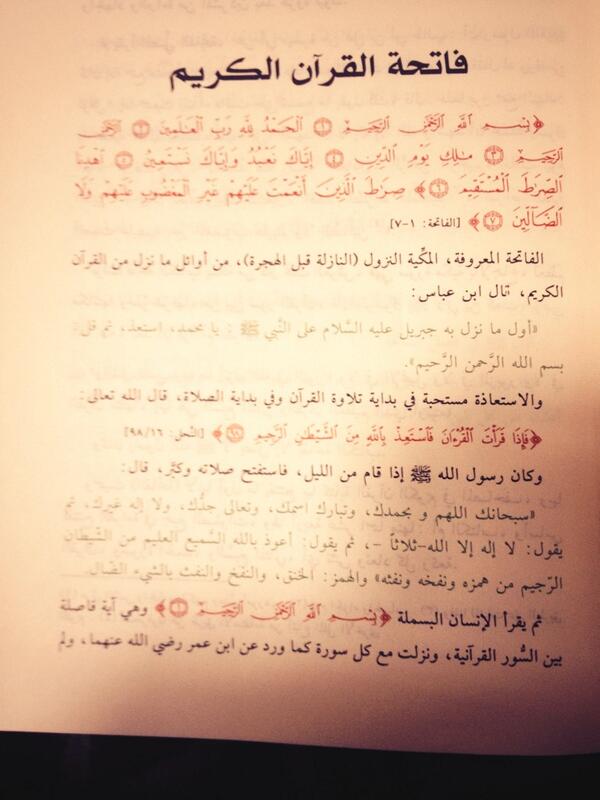 فاتحة القرآن الكريم
﴿بِسْمِ ٱللَّهِ ٱلرَّحْمَٰنِ ٱلرَّحِيمِ ۝١ ٱلْحَمْدُ لِلَّهِ رَبِّ ٱلْعَٰلَمِينَ ۝٢ ٱلرَّحْمَٰنِ
ٱلرَّحِيمِ ۝٣ مَٰلِكِ يَوْمِ ٱلدِّينِ ۝٤ إِيَّاكَ نَعْبُدُ وَإِيَّاكَ نَسْتَعِينُ ۝٥ ٱهْدِنَا
ٱلصِّرَٰطَ ٱلْمُسْتَقِيمَ ۝٦ صِرَٰطَ ٱلَّذِينَ أَنْعَمْتَ عَلَيْهِمْ غَيْرِ ٱلْمَغْضُوبِ عَلَيْهِمْ وَلَا
ٱلضَّآلِّينَ ۝٧﴾ [الفاتحة: ١-٧]
الفاتحة المعروفة، المكِّية النزول (النازلة قبل الهجرة)، من أوائل ما نزل من القرآن
الكريم، قال ابن عباس:
«أول ما نزل به جبريل عليه السَّلام على النَّبي ﷺ : يا محمد، استعذ، ثم قل:
بسم الله الرَّحمن الرَّحيم».
والاستعاذة مستحبة في بداية تلاوة القرآن وفي بداية الصلاة، قال الله تعالى:
﴿فَإِذَا قَرَأْتَ ٱلْقُرْءَانَ فَٱسْتَعِذْ بِٱللَّهِ مِنَ ٱلشَّيْطَٰنِ ٱلرَّجِيمِ ۝٩٨﴾ [النَّحل: ٩٨/١٦]
وكان رسول الله ﷺ إذا قام من الليل، فاستفتح صلاته وكبَّر، قال:
«سبحانك اللهم و بحمدك، وتبارك اسمك، وتعالى جدُّك، ولا إله غيرك، ثم
يقول: لا إله إلا الله-ثلاثاً -، ثم يقول: أعوذ بالله السَّميع العليم من الشَّيطان
الرَّجيم من همزه ونفخه ونفثه» والهمز: الخنق، والنفخ والنفث بالشيء الضّال.
ثم يقرأ الإنسان البسملة ﴿بِسْمِ ٱللَّهِ ٱلرَّحْمَٰنِ ٱلرَّحِيمِ ۝١﴾ وهي آية فاصلة
بين السُّور القرآنية، ونزلت مع كل سورة كما ورد عن ابن عمر رضي الله عنهما، ولم